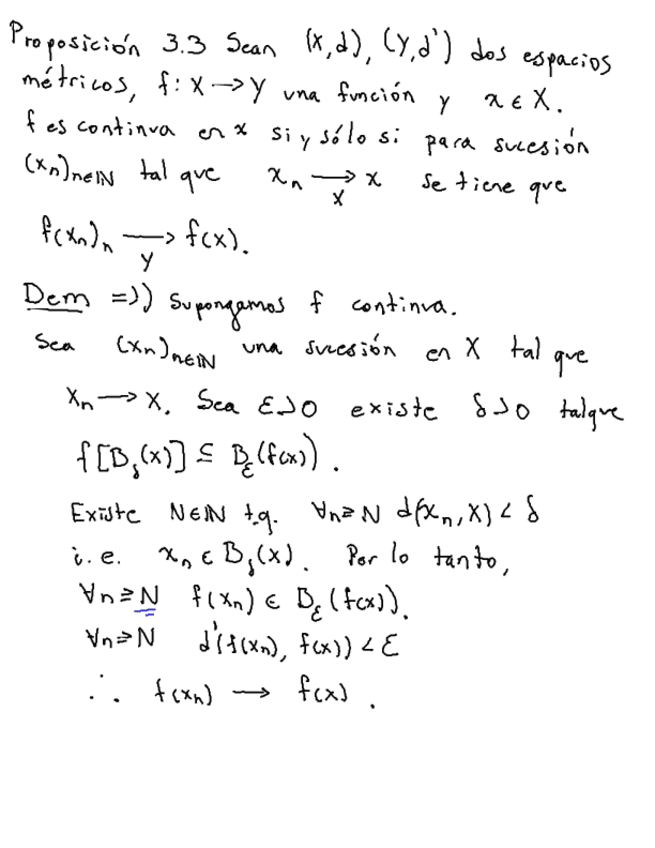 Proposición 3.3 Sean (X,d), (Y,d') dos espacios
métricos, f: X → Y una función y x ∈ X.
f es continua en x si y sólo si para sucesión
(xₙ)ₙ∈ℕ tal que xₙ →_X x se tiene que
f(xₙ)ₙ →_Y f(x).
Dem =>)) Supongamos f continua.
Sea (xₙ)ₙ∈ℕ una sucesión en X tal que
xₙ → x. Sea ε>0 existe δ>0 tal que
f[B_δ(x)] ⊆ B_ε(f(x)).
Existe N∈ℕ t.q. ∀n≥N d(xₙ,x) < δ
i.e. xₙ ∈ B_δ(x). Por lo tanto,
∀n≥N f(xₙ) ∈ B_ε(f(x)).
∀n≥N d'(f(xₙ), f(x)) < ε
∴ f(xₙ) → f(x).